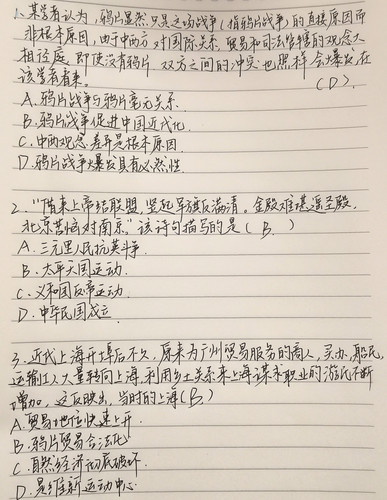 1.某学者认为,鸦片显然只是这场战争(指鸦片战争)的直接原因而
非根本原因,由于中西方对国际关系、贸易和司法管辖的观念大
相径庭,即使没有鸦片,双方之间的冲突也照样会爆发,在
该学者看来 (D)
A.鸦片战争与鸦片毫无关系.
B.鸦片战争促进中国近代化
C.中西观念差异是根本原因.
D.鸦片战争爆发具有必然性.
2."借来上帝结联盟,竖起军旗反满清。金殿难堪遥圣殿,
北京苦恼对南京。"该诗句描写的是(B )
A.三元里人民抗英斗争.
B.太平天国运动
C.义和团反帝运动.
D.中华民国成立.
3.近代上海开埠后不久,原来为广州贸易服务的商人,买办,船民,
运输工人大量转向上海,利用乡土关系来上海谋求职业的游民不断
增加,这反映出,当时的上海(B)
A.贸易地位快速上升.
B.鸦片贸易合法化
C.自然经济彻底破坏.
D.是维新运动中心.